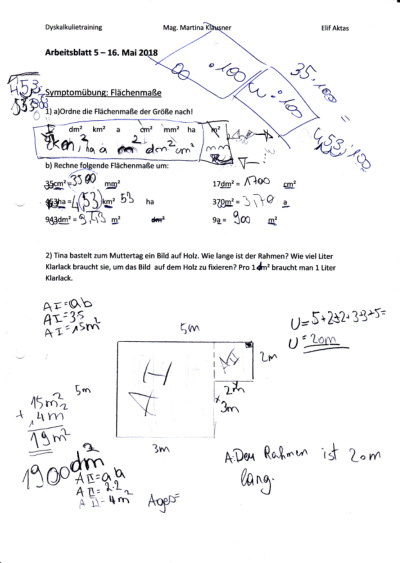 Dyskalkulietraining Mag. Martina Klausner Elif Aktas
Arbeitsblatt 5 – 16. Mai 2018
:100
:100
35:100
=
453:100
453
Symptomübung: Flächenmaße
1) a)Ordne die Flächenmaße der Größe nach!
dm² km² a cm² mm² ha m²
km² ha a m² dm² cm² mm
b) Rechne folgende Flächenmaße um:
35cm² = 3500 mm² 17dm² = 1700 cm²
453ha = 4(53) km² 53 ha 370m² = 3,70 a
943dm² = 9,43 m² dm² 9a = 900 m²
2) Tina bastelt zum Muttertag ein Bild auf Holz. Wie lange ist der Rahmen? Wie viel Liter
Klarlack braucht sie, um das Bild auf dem Holz zu fixieren? Pro 1 dm² braucht man 1 Liter
Klarlack.
A I = a·b
A I = 3·5
A I = 15m²
5m
U = 5+2+2+2+3+3+5=
U = 20m
2m
2m
3m
5m
3m
15m²
+ 4m²
19m²
1900dm²
A II = a·b
A II = 2·2
A II = 4m²
Ages=
A: Der Rahmen ist 20m
lang.